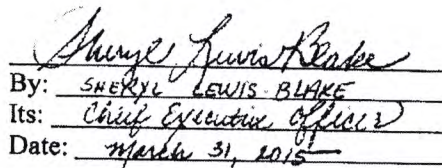 Sheryl Lewis Blake
By: SHERYL LEWIS BLAKE
Its: Chief Executive Officer
Date: March 31, 2015